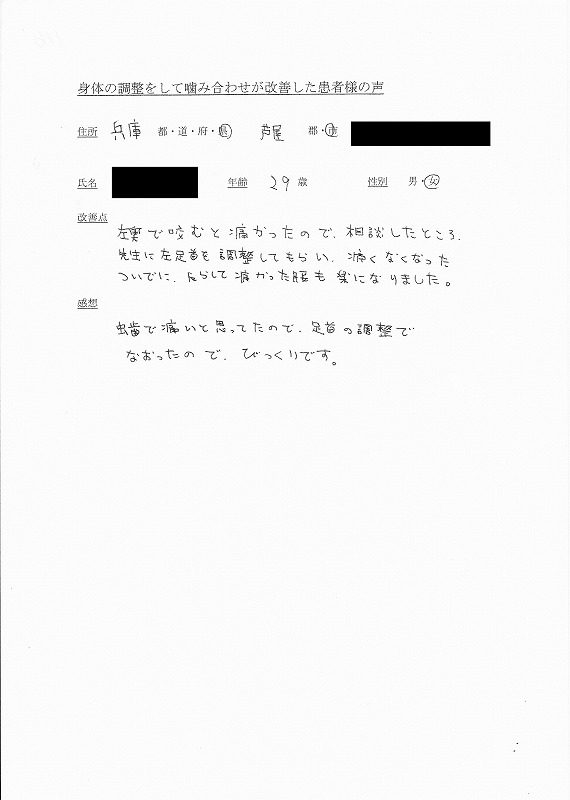 身体の調整をして噛み合わせが改善した患者様の声
住所 兵庫 都・道・府・県 芦屋 郡・市
氏名 年齢 29 歳 性別 男・女
改善点
左奥で咬むと痛かったので、相談したところ、
先生に左足首を調整してもらい、痛くなくなった
ついでに、反らして痛かった腰も楽になりました。
感想
虫歯で痛いと思ってたので、足首の調整で
なおったので、びっくりです。